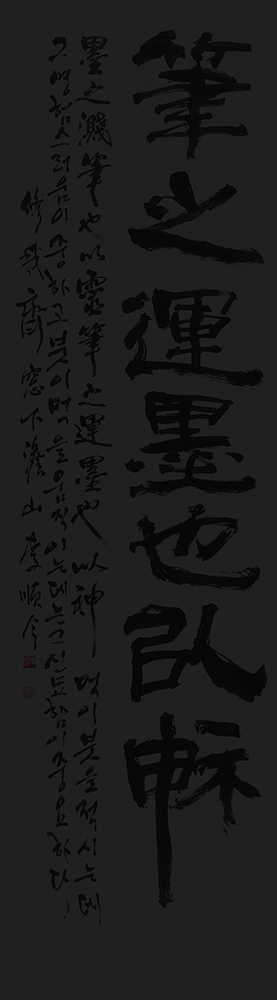 筆之運墨也以神
墨之濺筆也以靈筆之運墨也以神 먹이 붓을 적시는데
그 영험스러움이 중하고 붓이 먹을 움직이는데는 그 신묘함이 중요하다
齋窓下 山 李順今